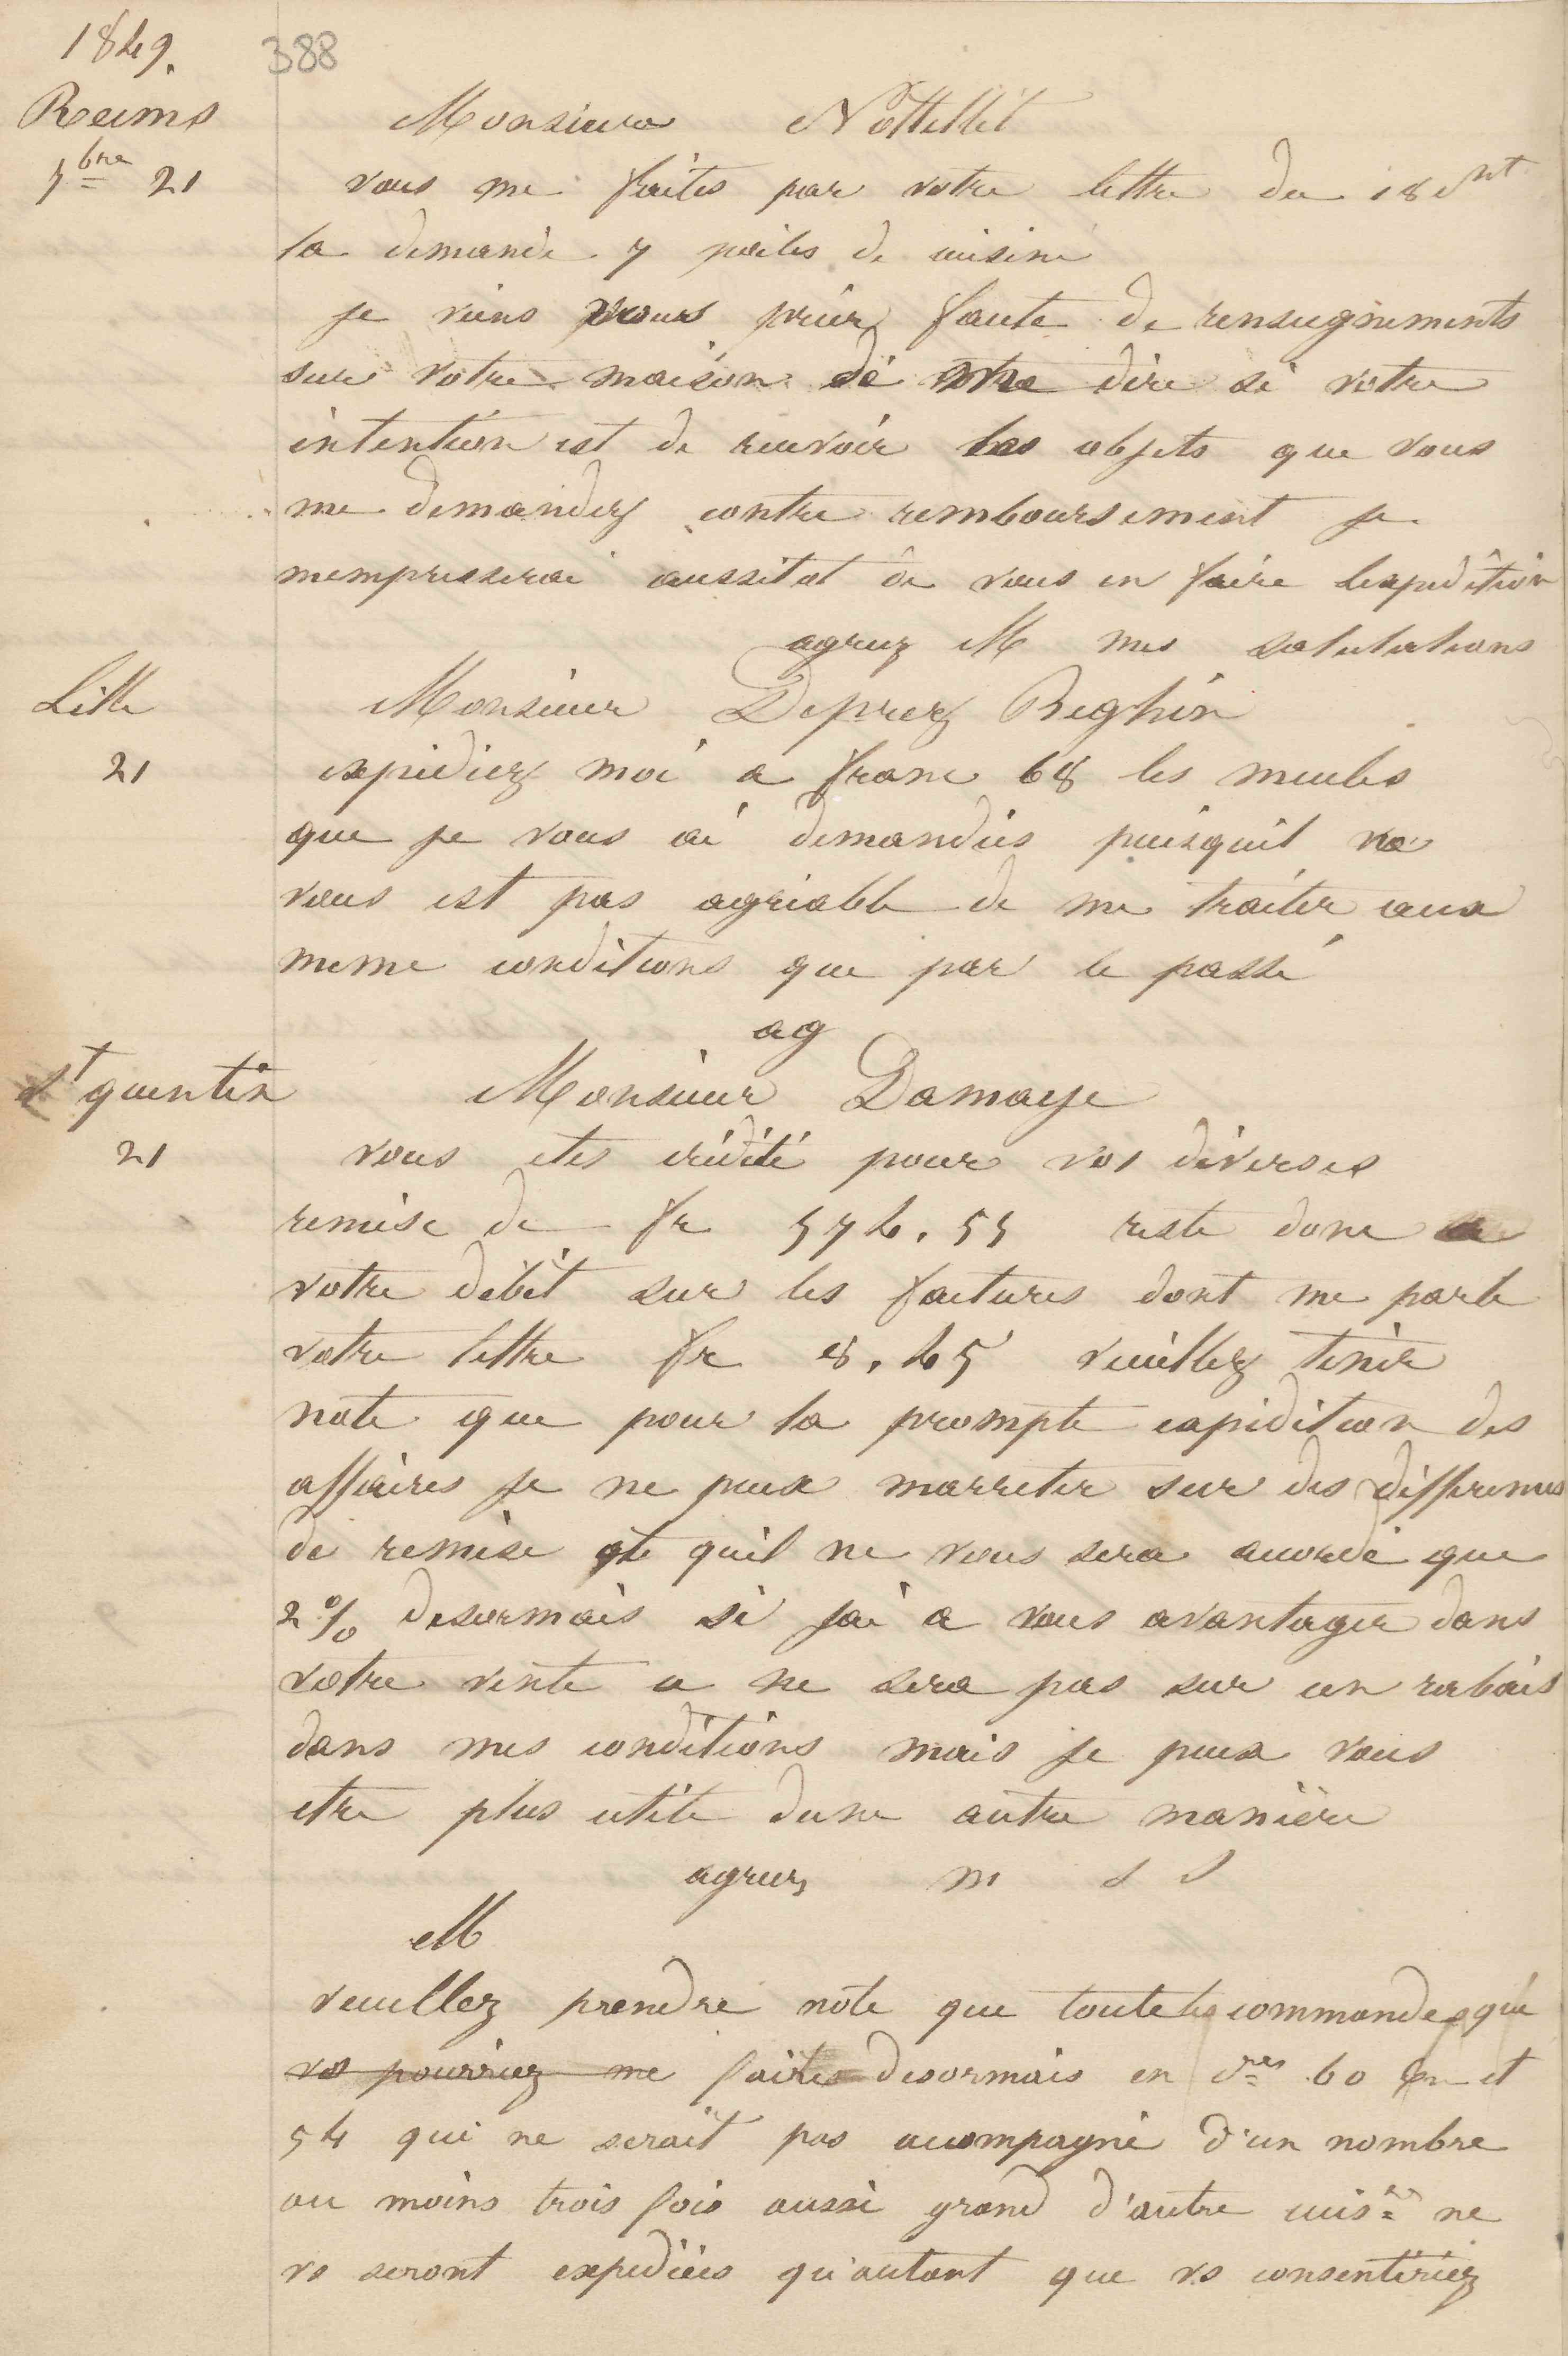 1849.
388
Reims
7bre 21
Monsieur Nottellet
vous me faites par votre lettre du 18 ct
la demande 7 poiles de cuisine
je viens vous prier faute de renseignements
sur votre maison de me dire si votre
intention est de recevoir les objets que vous
me demandez contre remboursement je
mempresserai aussitot de vous en faire lexpedition
agreez M mes salutations
Lille
21
Monsieur Deprez Beghin
expediez moi a franc 68 les meules
que je vous ai demandées puisquil ne
vous est pas agréable de me traiter aux
meme conditions que par le passé
ag
St quentin
21
Monsieur Damaye
vous etes crédité pour vos diverses
remise de fr 574.55 reste donc a
votre débit sur les factures dont me parle
votre lettre fr 8.45 veuillez tenir
note que pour la prompte expidition des
affaires je ne peux marreter sur des differences
de remise et quil ne vous sera accordé que
2% desormais si jai a vous avantager dans
votre vente ce ne sera pas sur un rabais
dans mes conditions mais je peux vous
etre plus utile dune autre manière
agreez m s s
M
veuillez prendre note que toute les commandes que
vs pourriez me faites desormais en 60 et
54 qui ne serait pas accompagné d'un nombre
au moins trois fois aussi grand d'autre cuis.es ne
vs seront expediées qu'autant que vs consentiriez